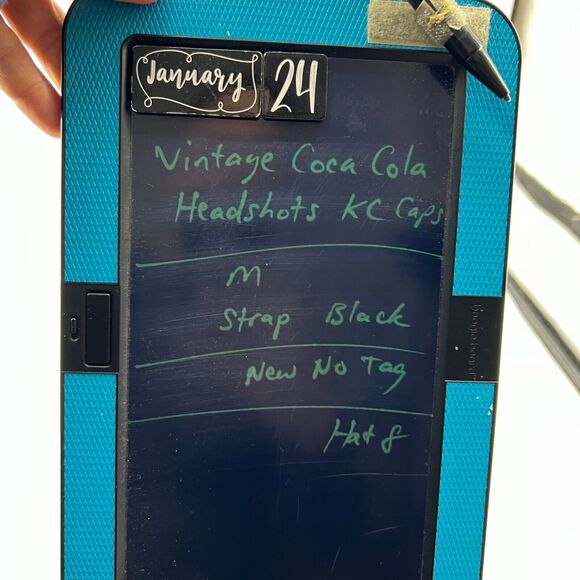 January 24
Vintage Coca Cola
Headshots KC Caps
M
Strap Black
New No Tag
Hat 8
boogie board